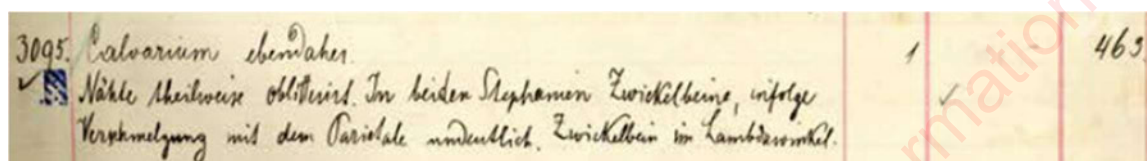 3095. Calvarium ebendaher. 1 463
Nähte theilweise obliterirt. In beiden Stephanien Zwickelbeine, infolge
Verschmelzung mit dem Parietale undeutlich. Zwickelbein im Lambdawinkel.
rmation